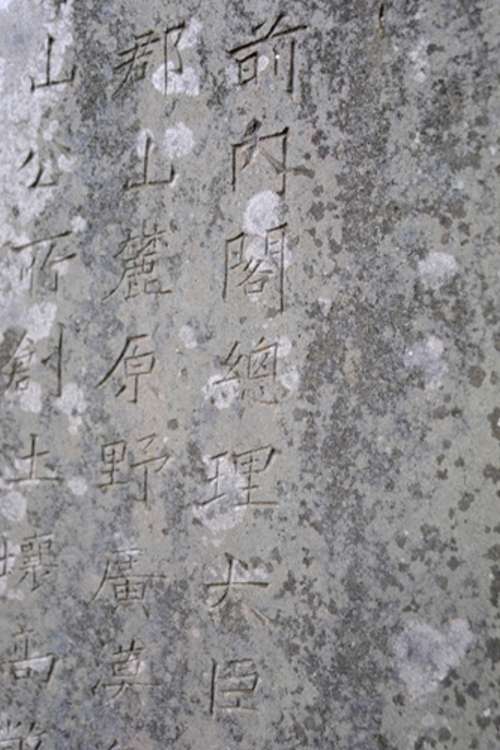 前内閣總理大臣
郡山麓原野廣漠
山公所創土壤高